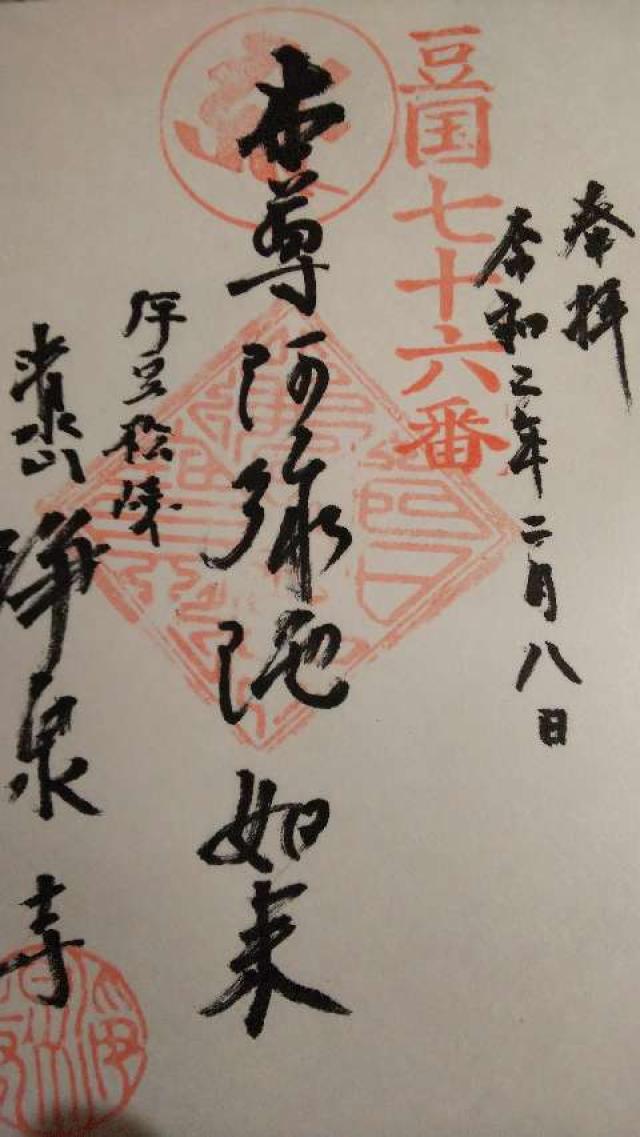 奉拝
令和二年二月八日
豆国七十六番
本尊阿弥陀如来
伊豆松崎
浄泉寺